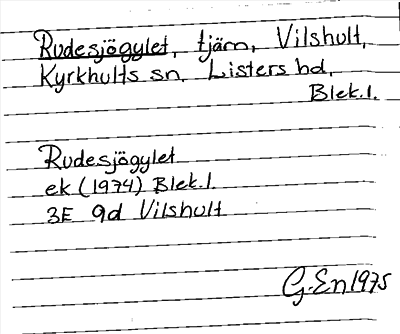 Rudesjögylet, tjärn, Vilshult,
Kyrkhults sn. Listers hd,
Blek.l.
Rudesjögylet
ek (1974) Blek.l.
3E 9d Vilshult
G.En 1975